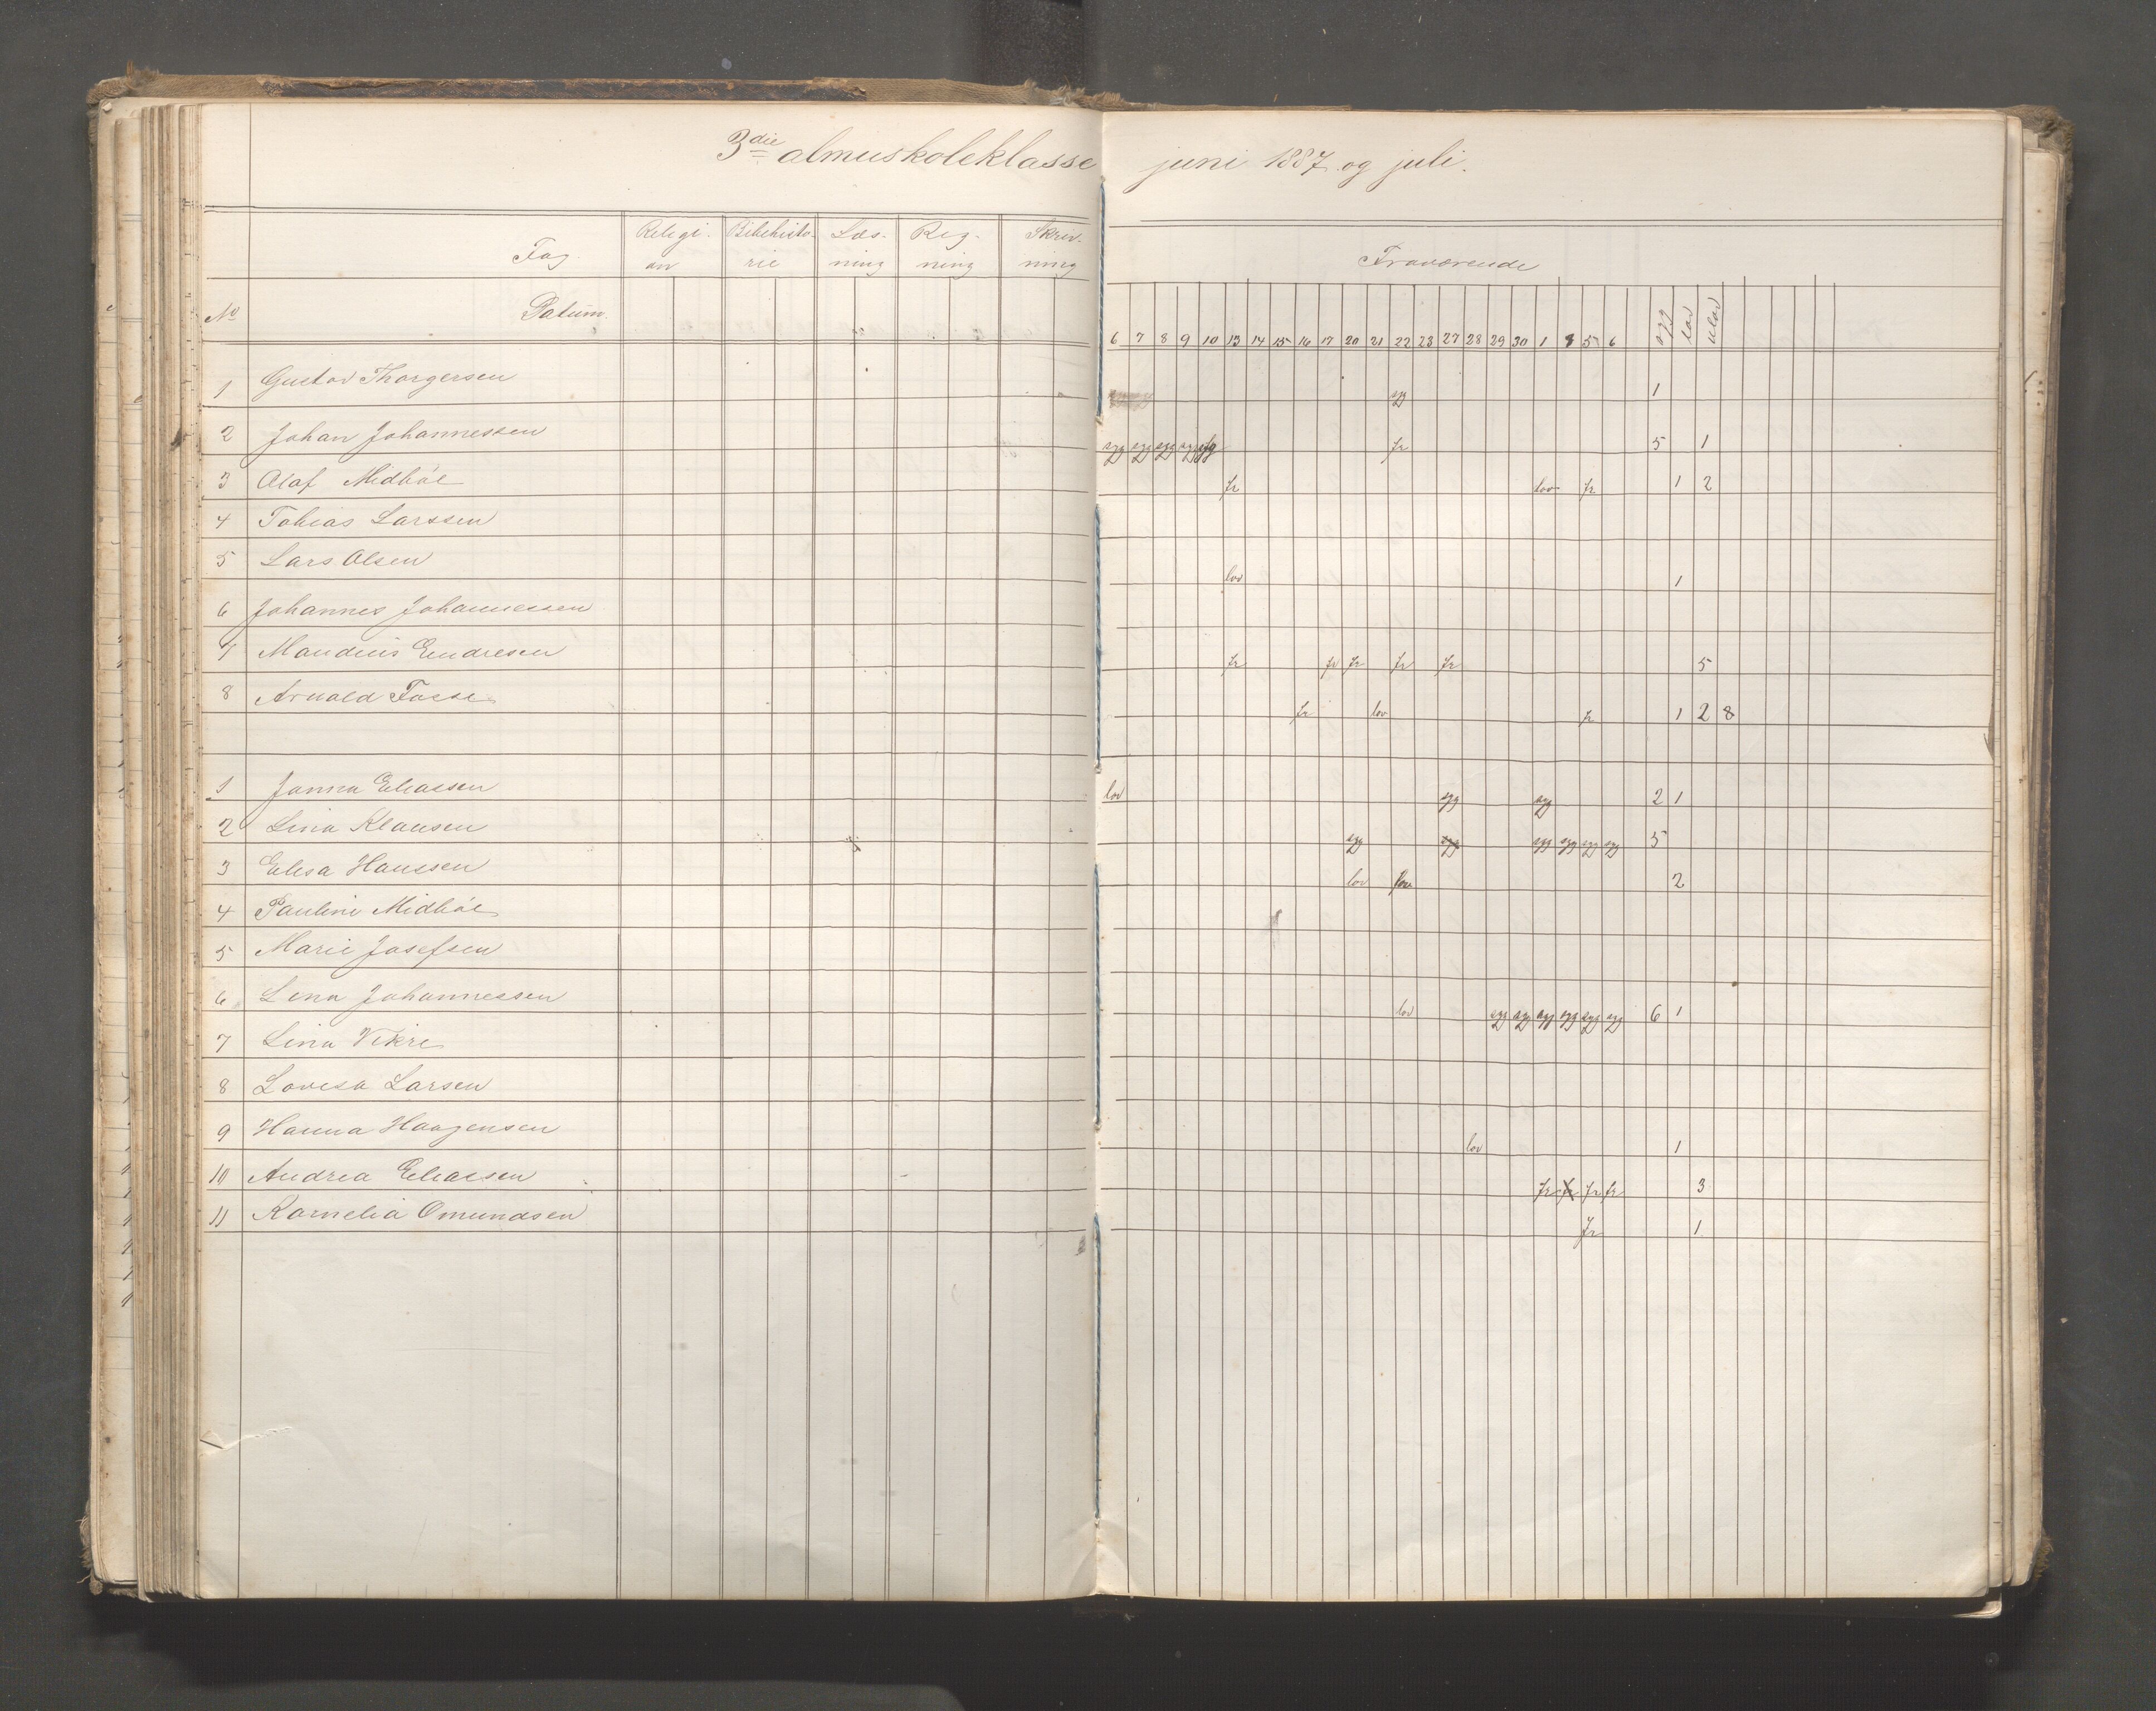 3die almuskoleklasse juni 1887 og juli.
Fag Religion Bibelhistorie Læsning Regning Skrivning Fraværende
No Datum. 6 7 8 9 10 13 14 15 16 17 20 21 22 23 27 28 29 30 1 5 6 syg lov ulov
1 Gustav Thorgersen syg 1
2 Johan Johannessen syg syg syg syg syg fr 5 1
3 Olaf Midbøe fr lov fr 1 2
4 Tobias Larssen
5 Lars Olsen lov 1
6 Johannes Johannessen
7 Maudius Endresen fr fr fr fr fr 5
8 Arnold Fosse fr lov fr 1 2 8
1 Janna Eliassen lov syg syg 2 1
2 Lina Klausen syg syg syg syg syg syg 5
3 Elisa Hanssen lov lov 2
4 Pauline Midbøe
5 Marie Josefsen
6 Lina Johannessen lov syg syg syg syg syg syg 6 1
7 Lina Vikre
8 Lovisa Larsen
9 Hanna Haagensen lov 1
10 Andrea Eliassen fr fr fr fr 3
11 Kornelia Omundsen fr 1